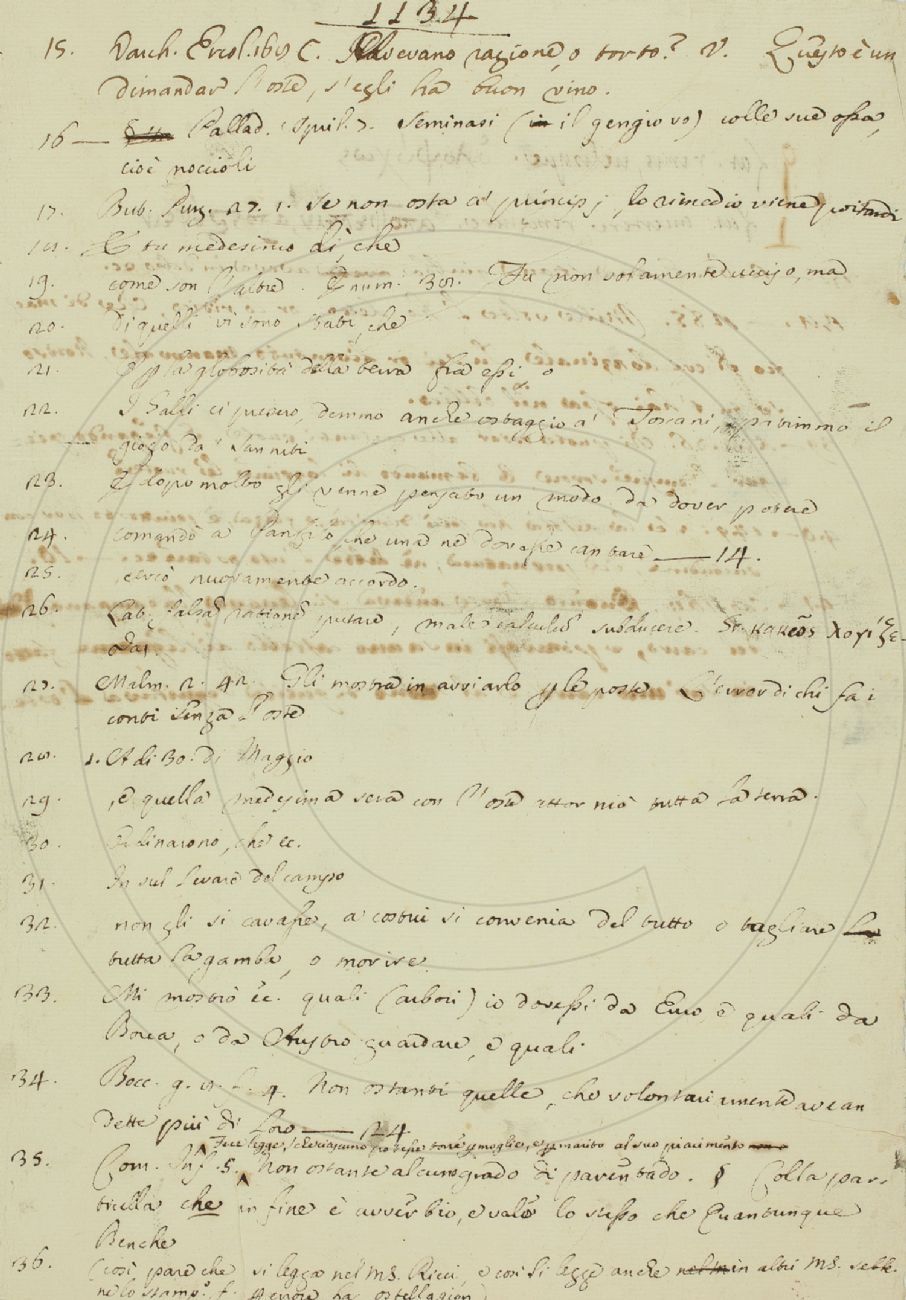 1134
15. Varch. Ercol. 169 C. Avevano ragione, o torto? V. Questo è un
dimandar l'oste, s'egli ha buon vino.
16 — Pallad. April. 7. Seminasi (il gengiovo) colle sue ossa,
cioè noccioli
17. But. Purg. 27. 1. Se non osta a' principj, lo rimedio viene poi tardi
18. E tu medesimo di', che
19. come son l'altre. E num. 38. Fu non solamente ucciso, ma
20. Di quelli vi sono stati, che
21. E p la globosità della terra fra essi
22. I Galli ci presero, demmo anche ostaggio a' Toscani, patimmo il
giogo da' Sanniti
23. E dopo molto gli venne pensato un modo da dover potere
24. comandò a Panfilo, che una ne dovesse cantare — 14.
25. cercò nuovamente accordo.
26. Lat. falsa ratione putare, male calculis subducere. κακῶς λογίζε-
σθαι.
27. Malm. 2. 42. Gli mostra in avviarlo p le poste L'error di chi fa i
conti senza l'oste
28. 1. A di 30. di Maggio
29. , e quella medesima sera con l'oste attorniò tutta la terra.
30. Ordinarono, che ec.
31. In sul levare del campo
32. non gli si cavasse, a costui si convenia del tutto o tagliare la
tutta la gamba, o morire.
33. Mi mostrò ec. quali (arbori) io dovessi da Euro, e quali da
Borea, o da Austro guardare, e quali
34. Bocc. g. 4. Non ostanti quelle, che volontariamente avean
dette più di loro — 24.
Fece legge, che ciascuno potesse torre p moglie, e p marito al suo piacimento
35. Com. Inf. 5. Non ostante alcun grado di parentado. § Colla par-
ticella che in fine è avverbio, e vale lo stesso che Quantunque
Benche
36. (così pare che si legga nel MS. Ricci, e così si legge anche in altri MS. sebbe-
ne lo stamp. ha ostellagion